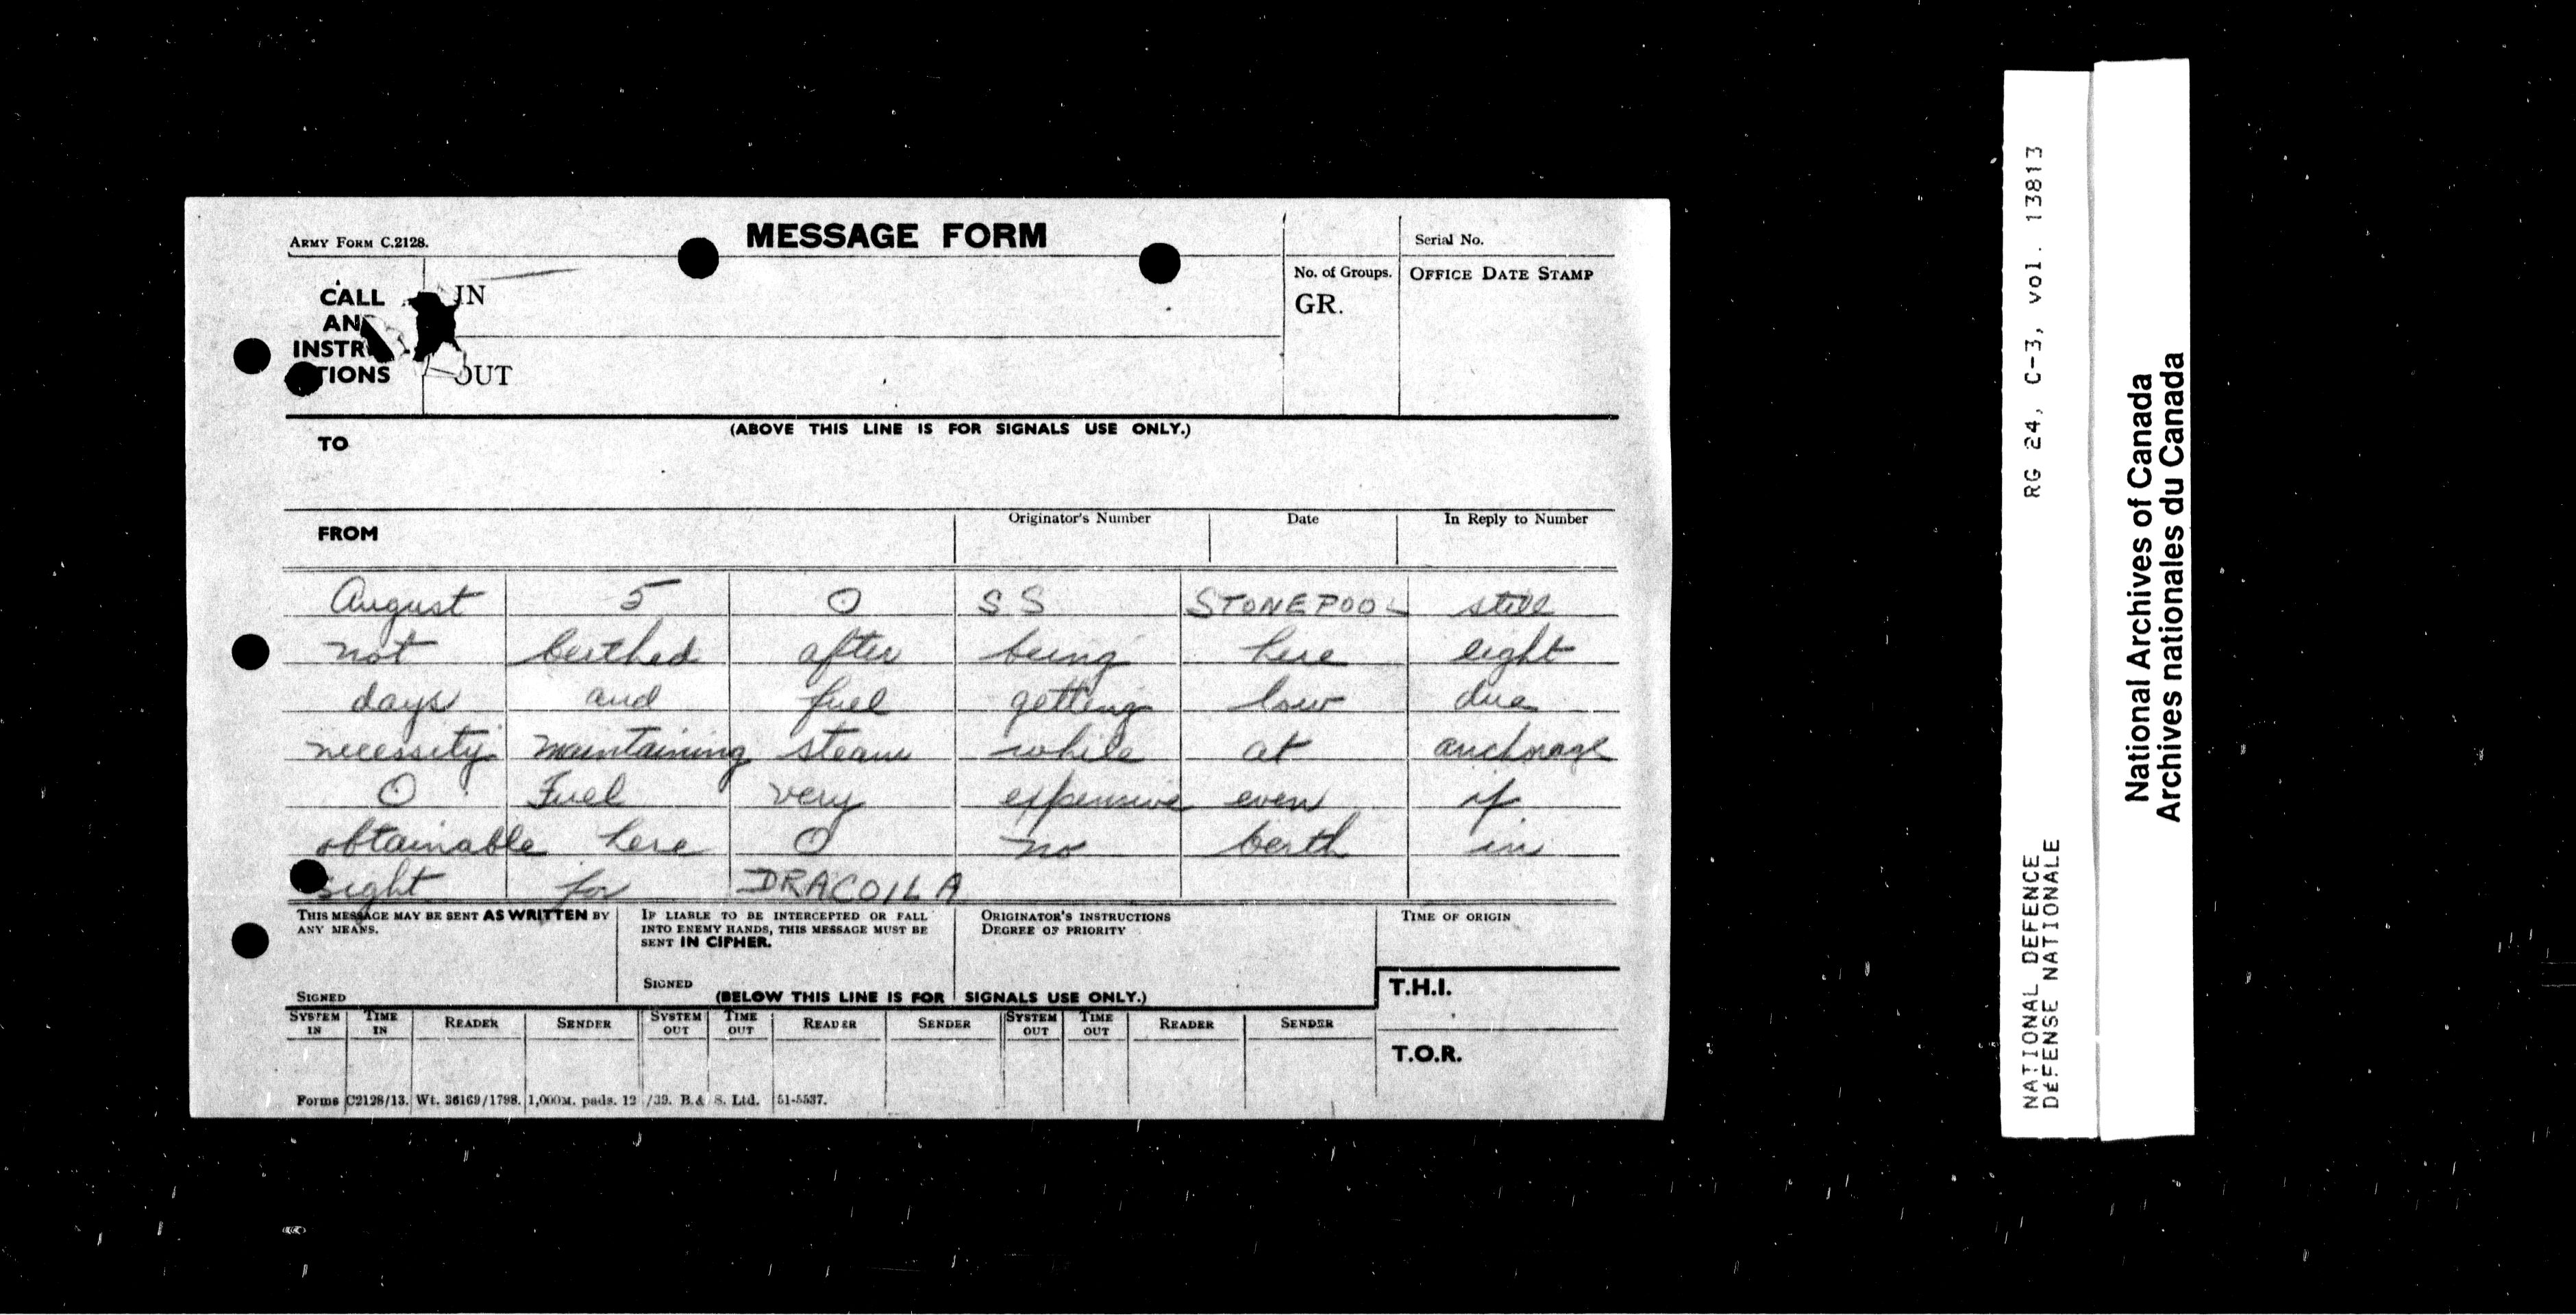 ARMY FORM C.2128.
MESSAGE FORM
Serial No.
CALL
AN
INSTR
TIONS
IN
OUT
No. of Groups.
GR.
OFFICE DATE STAMP
(ABOVE THIS LINE IS FOR SIGNALS USE ONLY.)
TO
FROM
Originator's Number
Date
In Reply to Number
August 5 O SS STONEPOOL still
not berthed after being here eight
days and fuel getting low due
necessity maintaining steam while at anchorage
O Fuel very expensive even if
obtainable here O no berth in
sight for DRACOILA
THIS MESSAGE MAY BE SENT AS WRITTEN BY
ANY MEANS.
SIGNED
IF LIABLE TO BE INTERCEPTED OR FALL
INTO ENEMY HANDS, THIS MESSAGE MUST BE
SENT IN CIPHER.
SIGNED
ORIGINATOR'S INSTRUCTIONS
DEGREE OF PRIORITY
TIME OF ORIGIN
(BELOW THIS LINE IS FOR SIGNALS USE ONLY.)
T.H.I.
SYSTEM IN TIME IN READER SENDER SYSTEM OUT TIME OUT READER SENDER SYSTEM OUT TIME OUT READER SENDER
T.O.R.
Forms C2128/13. Wt. 36169/1798. 1,000M. pads. 12/39. B. & S. Ltd. 51-5537.
RG 24, C-3, vol. 13813
NATIONAL DEFENCE
DEFENSE NATIONALE
National Archives of Canada
Archives nationales du Canada